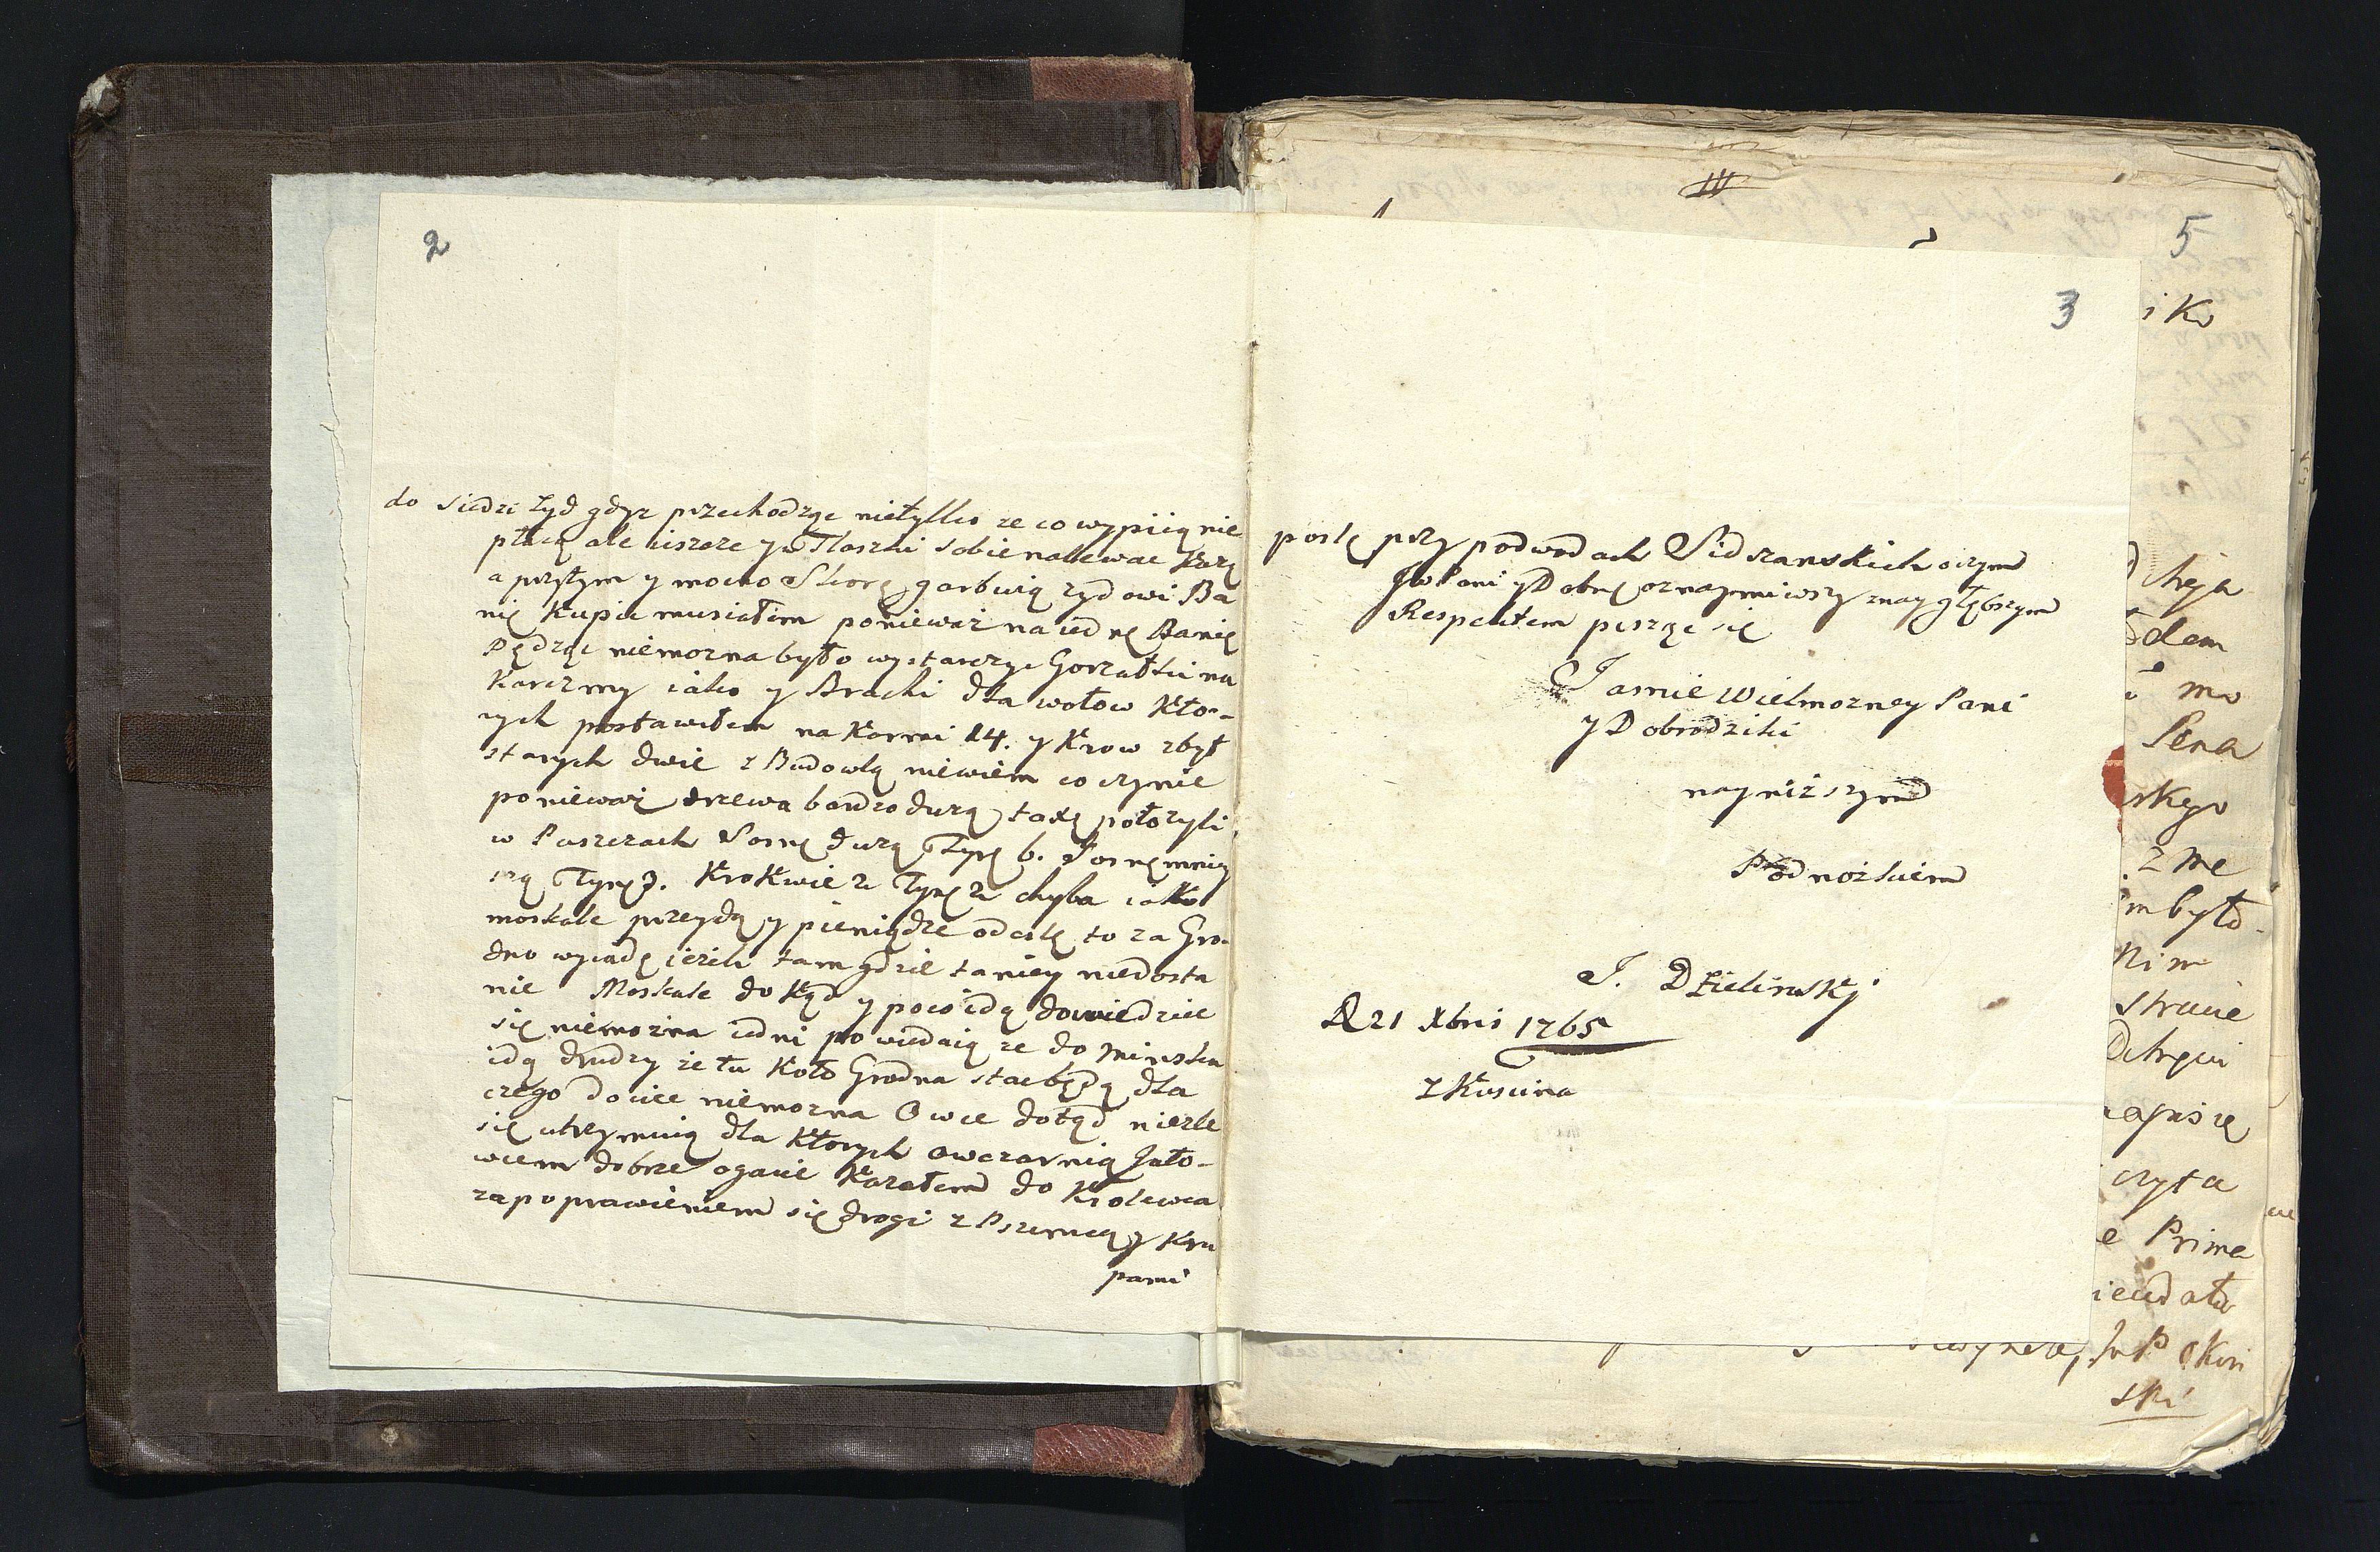 2
do siedzi Zyd gdyz przechodząc nietylko ze co wypiią nie
płacą ale ieszcze y w Flaszki sobie nalewac każą
a przytym y mocno Skorę garbuią zydowi Ba
nię Kupic musiałem poniewaz na iednę Banię
Pędząc niemozna było wystarczyc Gorzałki na
Karczmy iako y Brachi dla wołow Kto-
rych postawiłem na Karmi 14. y Krow zbyt
starych dwie z Budowlą niewiem co czynic
poniewaz drzewa bardzo duzą taxę połozyli
w Puszczach Sosnę duzą Tynf 6. Sosnę mniey
szą Tynf 3. Krokwie 2 Tynf 2 chyba iako
moskale przeydą y pieniądze odeslę to za Gro-
dno wyiadę iezeli tam gdzie taniey niedosta
nie Moskale dokąd y poco idą dowiedziec
się niemozna iedni powiedaią ze do Minska
idą drudzy ze tu Koło Grodna stac będą dla
czego dociec niemozna Owce dotąd niezle
się utrzymuią dla Ktorych owczarnią Jało-
wcem dobrze ogacic Kazałem do Krolewca
za poprawieniem się drogi z Pszenicą y Kru
pami
3
poslę przy podwodach Sidrzanskich o czym
JwPani y Dobrę oznaymiwszy z nay głębszym
Respektem piszę się
Jasnie Wielmozney Pani
y Dobrodziki
nayniższym
Podnożkiem
J. Dzielinskj
D 21 Xbris 1765
z Kuscina
5
i Ko
dem
mo
Pena
skego
z me
m było
Nim
strucie
czyta
e Prime
JwP Okun
ski